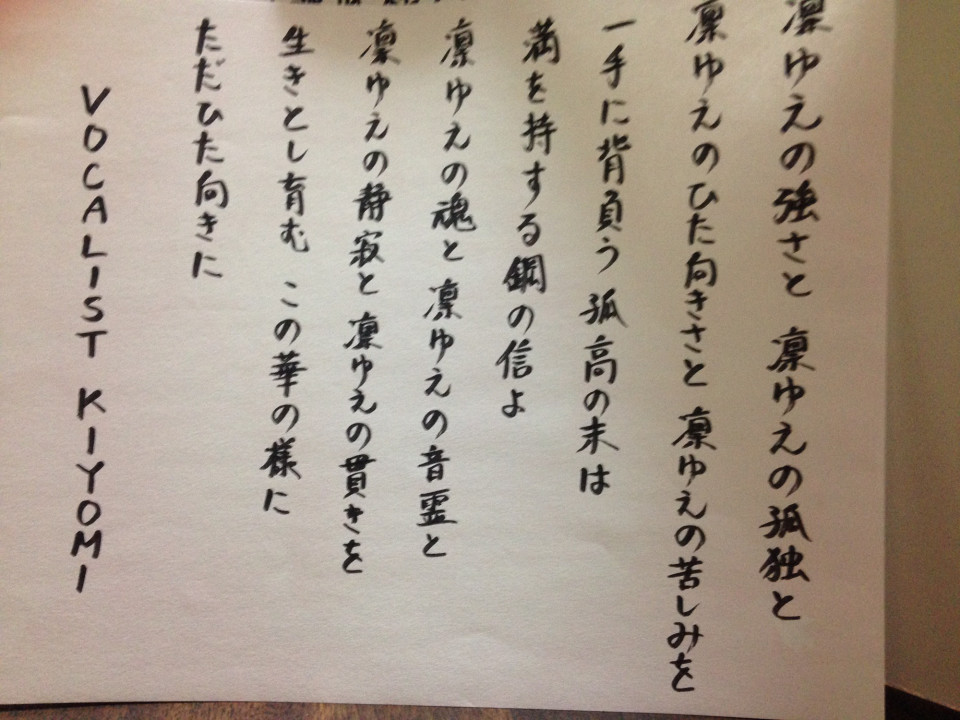 凛ゆえの強さと 凛ゆえの孤独と
凛ゆえのひた向きさと 凛ゆえの苦しみを
一手に背負う 孤高の末は
満を持する鋼の信よ
凛ゆえの魂と 凛ゆえの音霊と
凛ゆえの静寂と 凛ゆえの貫きを
生きとし育む この華の様に
ただひた向きに
VOCALIST KIYOMI